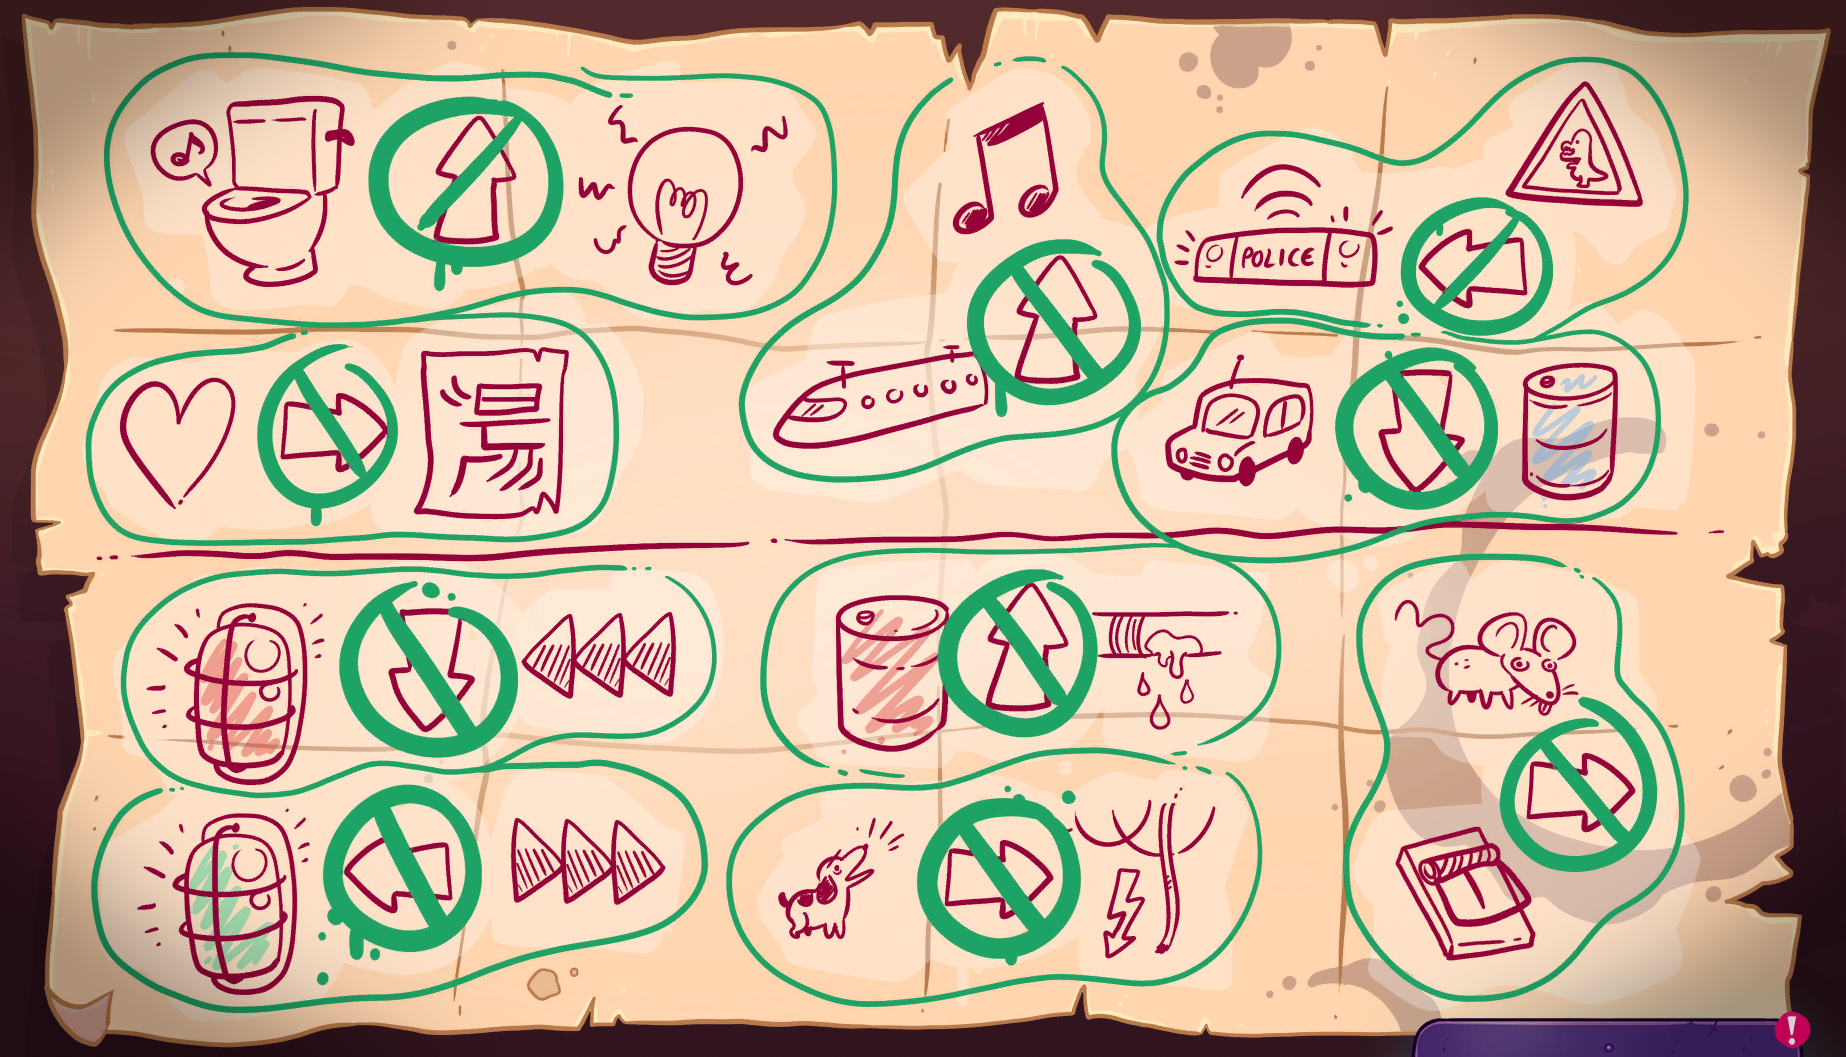 POLICE
!